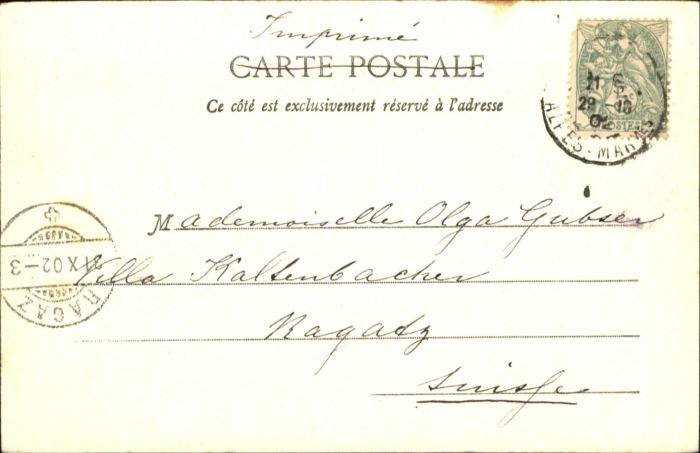 Imprimé
CARTE POSTALE
Ce côté est exclusivement réservé à l'adresse
21
29 10
02
POSTES
ALPES-MAR
Mademoiselle Olga Gubser
Villa Kaltenbacher
Ragatz
Suisse
RAGAZ
X.02-3